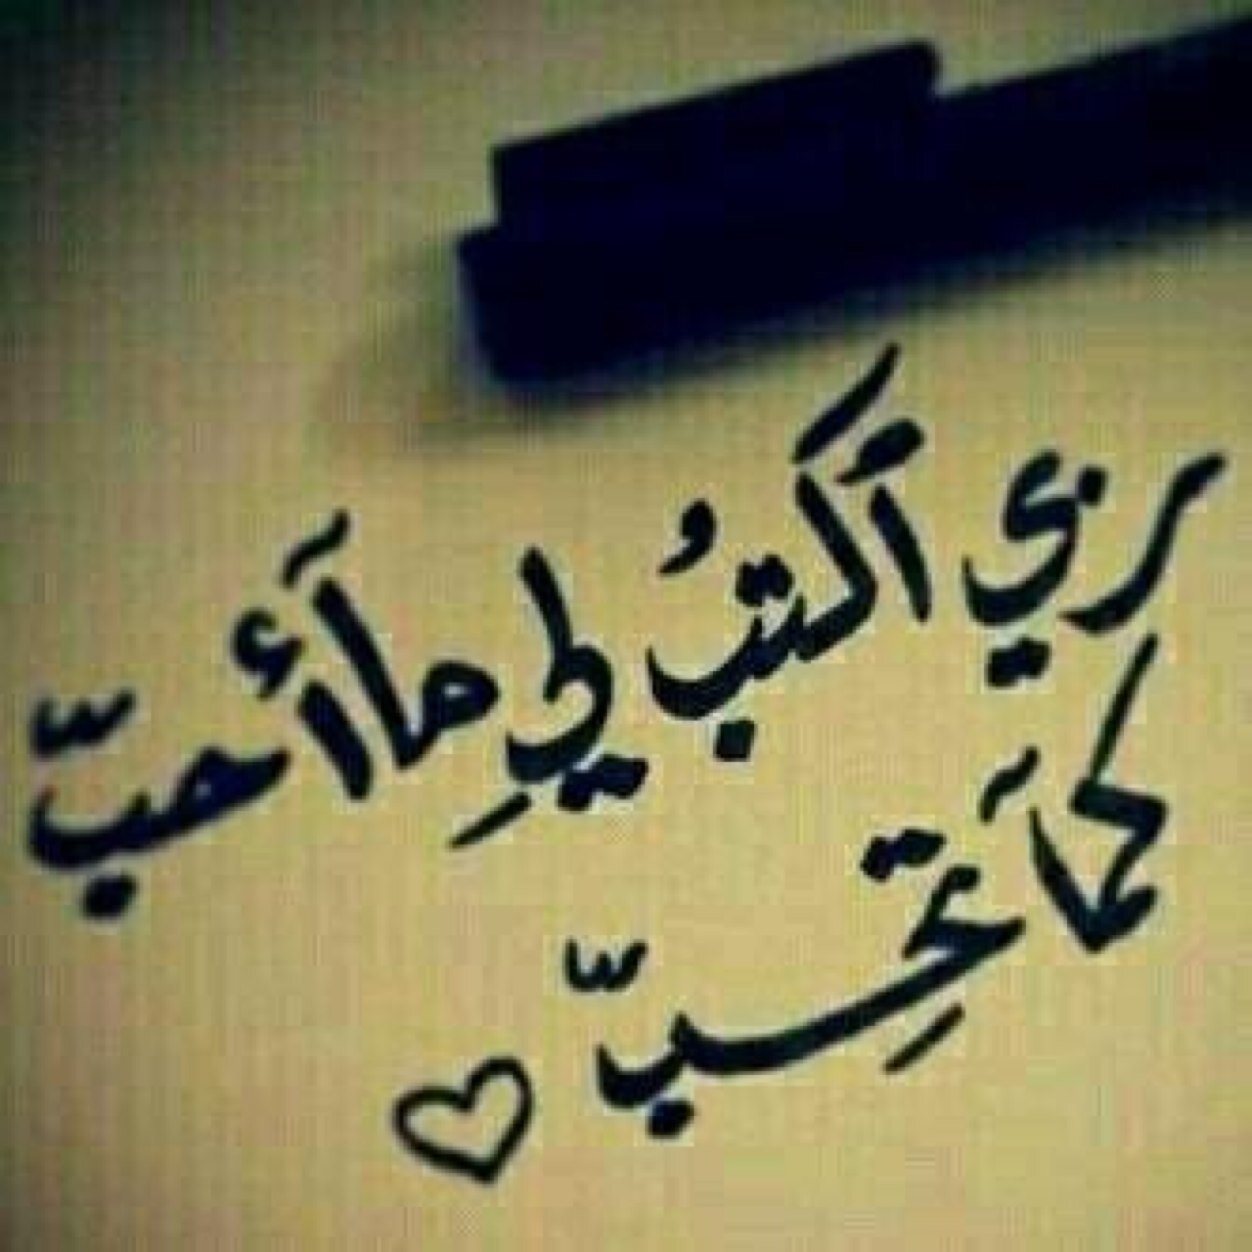 ربي أكتبُ ليِ مآأحبّ
كمآ تحِبّ